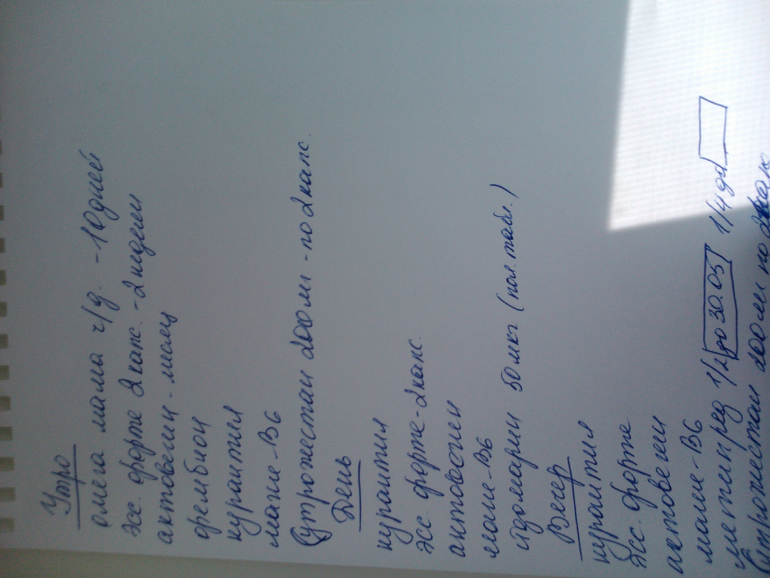 Утро
омега мама ч/д. - 10 дней
эсс. форте 2 капс. - 2 недели
актовегин - месяц
фембион
курантил
магне-В6
Утрожестан 200 мг - по 2 капс.
День
курантил
эсс. форте - 2 капс.
актовегин
магне-В6
йодомарин 50 мкг (пол. табл.)
Вечер
курантил
эсс. форте
актовегин
магне-В6
метипред 1/2 до 30.05 1/4 до
Утрожестан 200 мг по 2 капс